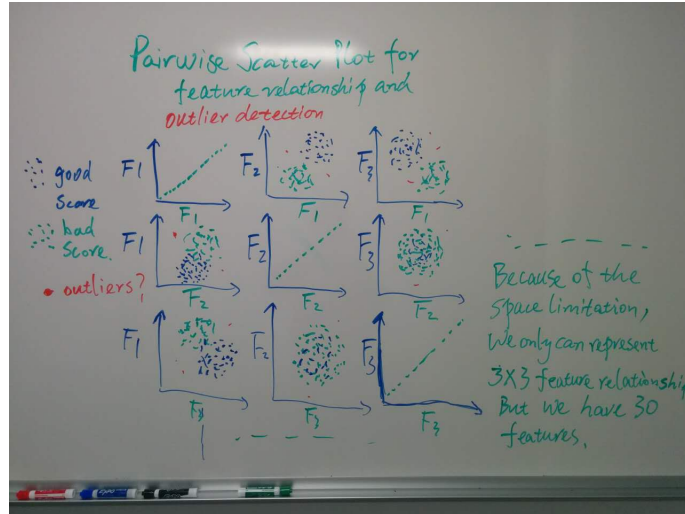 Pairwise Scatter Plot for
feature relationship and
outlier detection
good
score
bad
score
outliers?
F1
F1
F2
F1
F3
F1
F1
F2
F2
F2
F3
F2
F1
F3
F2
F3
F3
Because of the
space limitation,
We only can represent
3X3 feature relationship
But we have 30
features.